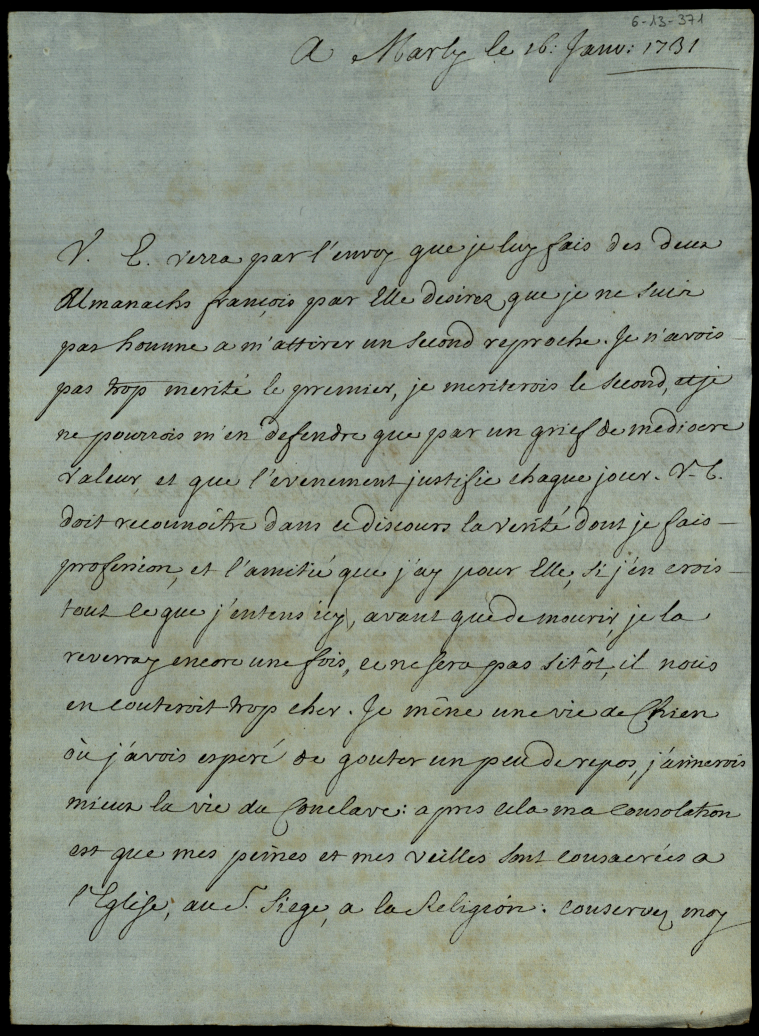 6-13-371
A Marly le 26: Janv: 1731
V. E. verra par l'envoy que je luy fais des deux
Almanachs françois par Elle desirez, que je ne suis
pas homme a m'attirer un second reproche. Je n'avois
pas trop merité le premier, je meriterois le second, et je
ne pourrois m'en defendre que par un grief de mediocre
valeur, et que l'evenement justifie chaque jour. V. E.
doit reconnoître dans ce discours la verité dont je fais
profession, et l'amitié que j'ay pour Elle, si j'en crois
tout ce que j'entens icy, avant que de mourir, je la
reverray encore une fois, ce ne sera pas sitôt, il nous
en couteroit trop cher. Je mêne une vie de Chien
où j'avois esperé de gouter un peu de repos, j'aimerois
mieux la vie du Conclave: apres cela ma consolation
est que mes peines et mes veilles sont consacrées a
l'Eglise, au S. Siege, a la Religion. conservez moy